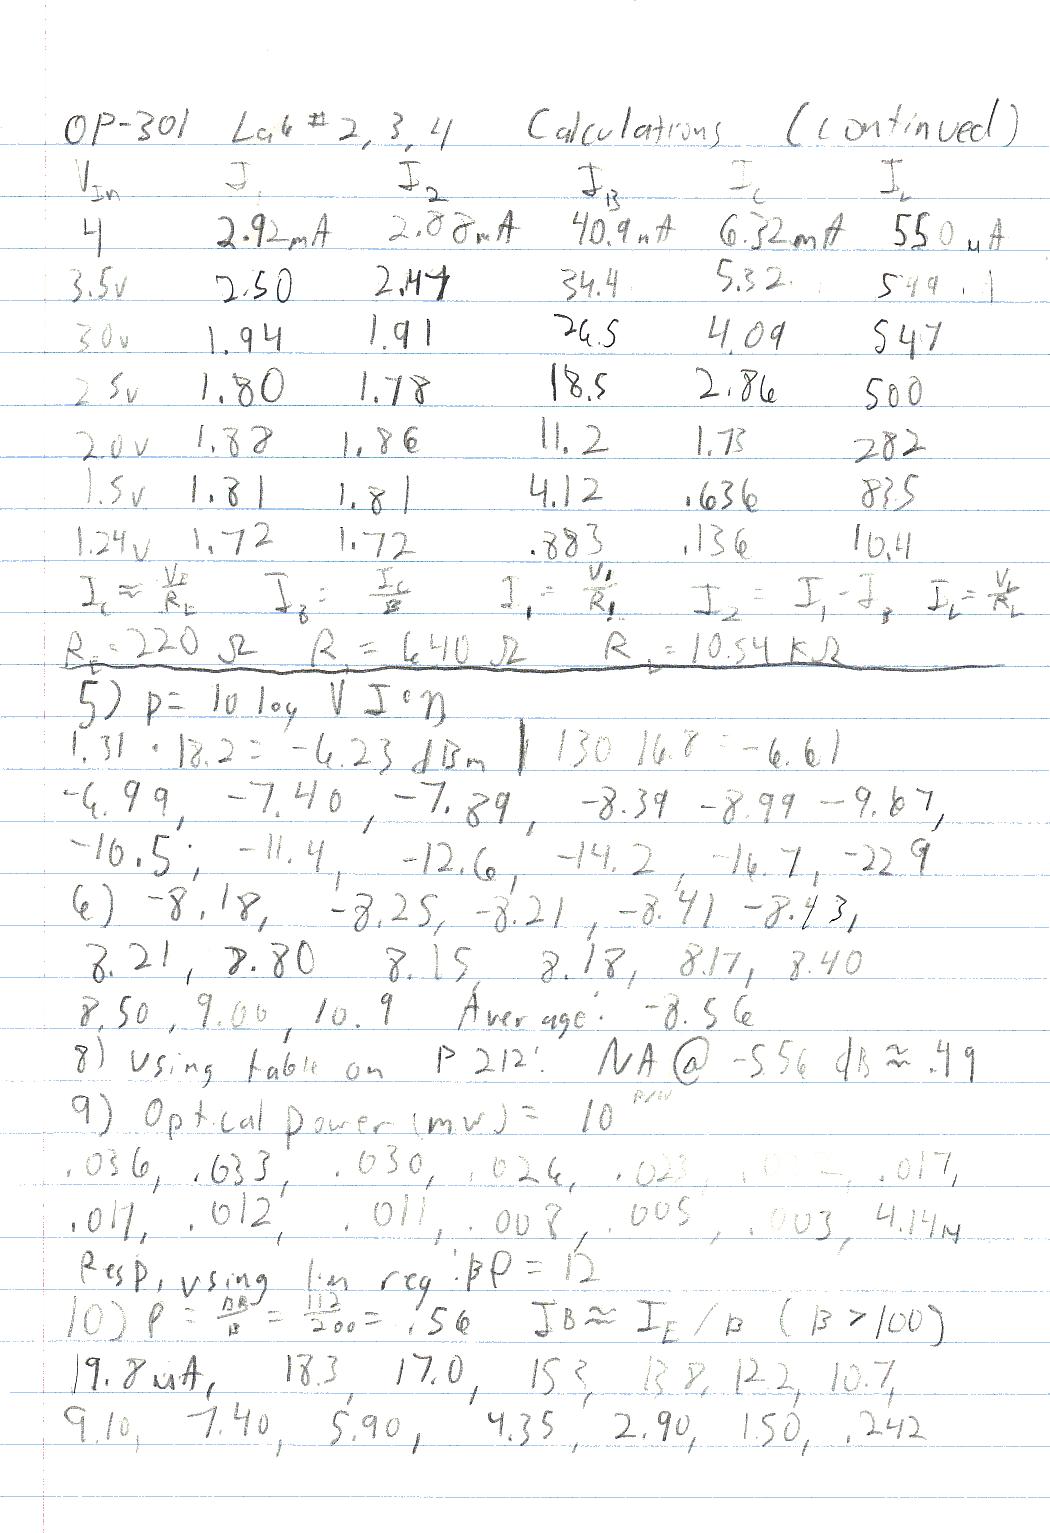 OP-301 Lab #2,3,4 Calculations (continued)
V_In I_1 I_2 I_B I_C I_L
4 2.92mA 2.88mA 40.9uA 6.32mA 550uA
3.5v 2.50 2.47 34.4 5.32 549
3.0v 1.94 1.91 26.5 4.09 547
2.5v 1.80 1.78 18.5 2.86 500
2.0v 1.88 1.86 11.2 1.73 282
1.5v 1.81 1.81 4.12 .636 83.5
1.24v 1.72 1.72 .883 .136 10.4
I_C ≈ V_E/R_E I_B = I_C/B I_1 = V_1/R_1 I_2 = I_1 - I_B I_L = V_L/R_L
R_E = 220 Ω R_1 = 640 Ω R_L = 10.54 KΩ
5) P = 10 log V I • η
1.31 • 18.2 = -6.23 dBm | 1.30 16.8 = -6.61
-6.99, -7.40, -7.89, -8.39 -8.99 -9.67,
-10.5, -11.4, -12.6, -14.2, -16.7, -22.9
6) -8.18, -8.25, -8.21, -8.41 -8.43,
8.21, 8.80 8.15, 8.18, 8.17, 8.40
8.50, 9.00, 10.9 Average: -8.56
8) Using table on P 212: NA @ -5.56 dB ≈ .49
9) Optical power (mw) = 10
.036, .033, .030, .026, .023, .017,
.017, .012, .011, .008, .005, .003, 4.14M
Resp, using lin reg: BP = 12
10) P = BP/B = 112/200 = .56 IB ≈ I_E / B (B > 100)
19.8uA, 18.3, 17.0, 15.3, 13.8, 12.2, 10.7,
9.10, 7.40, 5.90, 4.35, 2.90, 1.50, .242